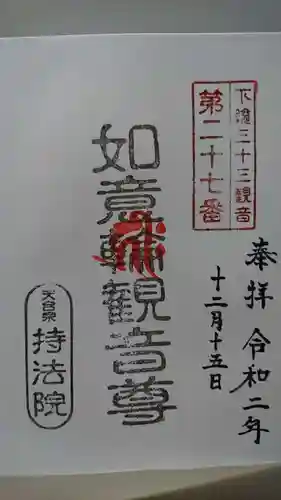 奉拝 令和二年
十二月十五日
下総三十三観音
第二十七番
如意輪観音尊
天台宗
持法院